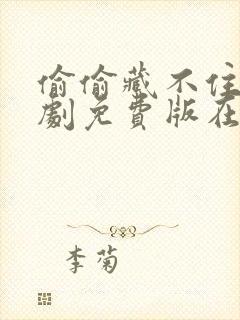 偷偷藏不住
劇免費版在
李菊